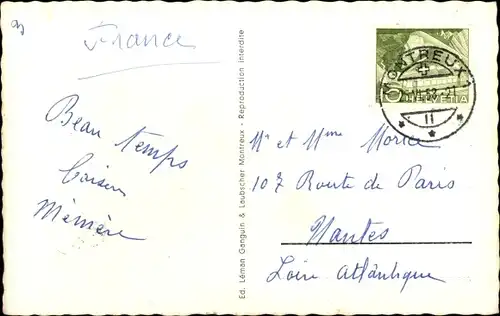 France
Beau temps
baisers
Mémère
Ed. Léman Ganguin & Laubscher Montreux - Reproduction interdite
MONTREUX 1
HELVETIA
Mr et Mme
107 Route de Paris
Nantes
Loire Atlantique